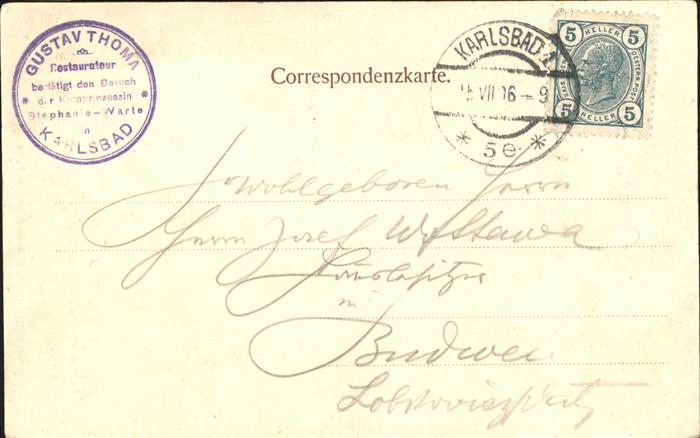 GUSTAV THOMA
Restaurateur
bestätigt den Besuch
der Kronprinzessin
Stephanie-Warte
in
KARLSBAD
Correspondenzkarte.
KARLSBAD 1
5 VII 06 - 9
* 5e *
5 HELLER 5
5 HELLER 5
Wohlgeboren Herrn
Herrn Josef Wottawa
Hausbesitzer
in
Budweis